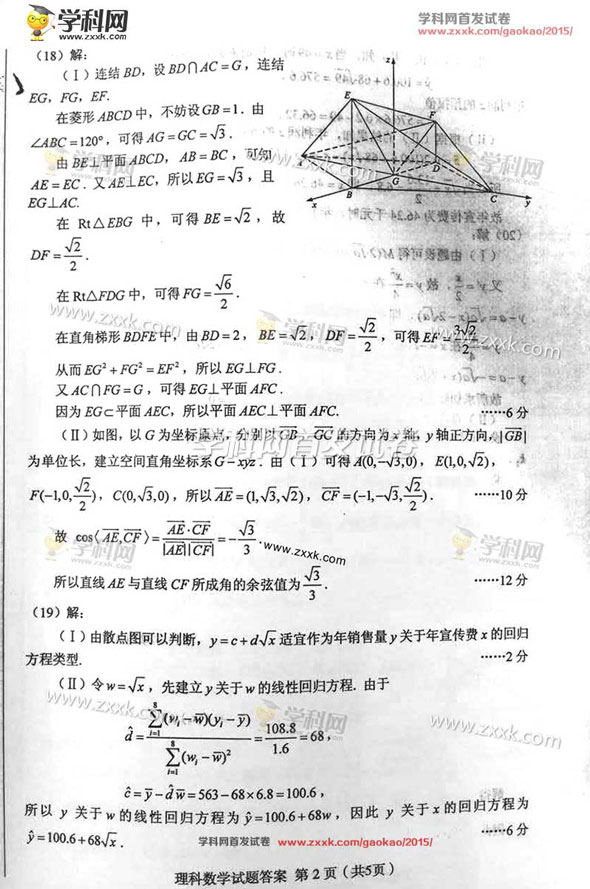 学科网
www.zxxk.com
学科网首发试卷
www.zxxk.com/gaokao/2015/
（18）解：
（Ⅰ）连结 BD，设 BD∩AC = G，连结
EG，FG，EF.
在菱形 ABCD 中，不妨设 GB = 1．由
∠ABC = 120°，可得 AG = GC = √3．
由 BE⊥平面 ABCD，AB = BC，可知
AE = EC．又 AE⊥EC，所以 EG = √3，且
EG⊥AC.
在 Rt△EBG 中，可得 BE = √2，故
DF = √2/2．
在 Rt△FDG 中，可得 FG = √6/2．
在直角梯形 BDFE 中，由 BD = 2，BE = √2，DF = √2/2，可得 EF = 3√2/2．
从而 EG² + FG² = EF²，所以 EG⊥FG．
又 AC∩FG = G，可得 EG⊥平面 AFC．
因为 EG⊂平面 AEC，所以平面 AEC⊥平面 AFC. ……6 分
（Ⅱ）如图，以 G 为坐标原点，分别以 GB，GC 的方向为 x 轴，y 轴正方向，|GB|
为单位长，建立空间直角坐标系 G－xyz．由（Ⅰ）可得 A(0,-√3,0)，E(1,0,√2)，
F(-1,0,√2/2)，C(0,√3,0)，所以 AE = (1,√3,√2)，CF = (-1,-√3,√2/2)． ……10 分
故 cos⟨AE,CF⟩ = AE·CF/|AE||CF| = -√3/3．
所以直线 AE 与直线 CF 所成角的余弦值为 √3/3． ……12 分
（19）解：
（Ⅰ）由散点图可以判断，y = c + d√x 适宜作为年销售量 y 关于年宣传费 x 的回归
方程类型. ……2 分
（Ⅱ）令 w = √x，先建立 y 关于 w 的线性回归方程. 由于
d̂ = ∑(i=1→8)(wᵢ - w̄)(yᵢ - ȳ)/∑(i=1→8)(wᵢ - w̄)² = 108.8/1.6 = 68，
ĉ = ȳ - d̂w̄ = 563 - 68×6.8 = 100.6，
所以 y 关于 w 的线性回归方程为 ŷ = 100.6 + 68w，因此 y 关于 x 的回归方程为
ŷ = 100.6 + 68√x． ……6 分
学科网首发试卷 www.zxxk.com/gaokao/2015/
理科数学试题答案 第 2 页（共5页）